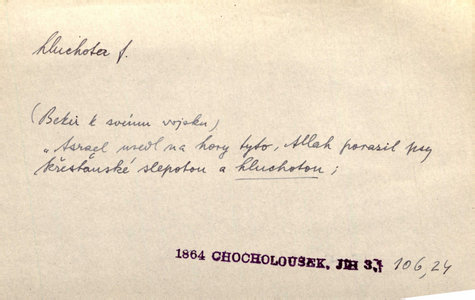 hluchota f.
(Bekir k svému vojsku)
„Asrael usedl na hory tyto, Allah porazil psy
křesťanské slepotou a hluchotou;
1864 CHOCHOLOUŠEK, JIH 3, 106,24